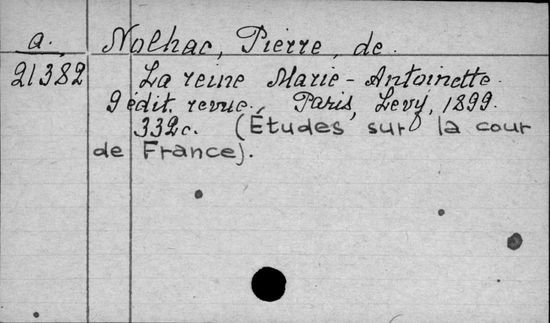 a. Nolhac, Pierre, de.
21382 La reine Marie-Antoinette.
9 édit. revue. Paris, Levy, 1899.
332c. (Études sur la cour
de France).